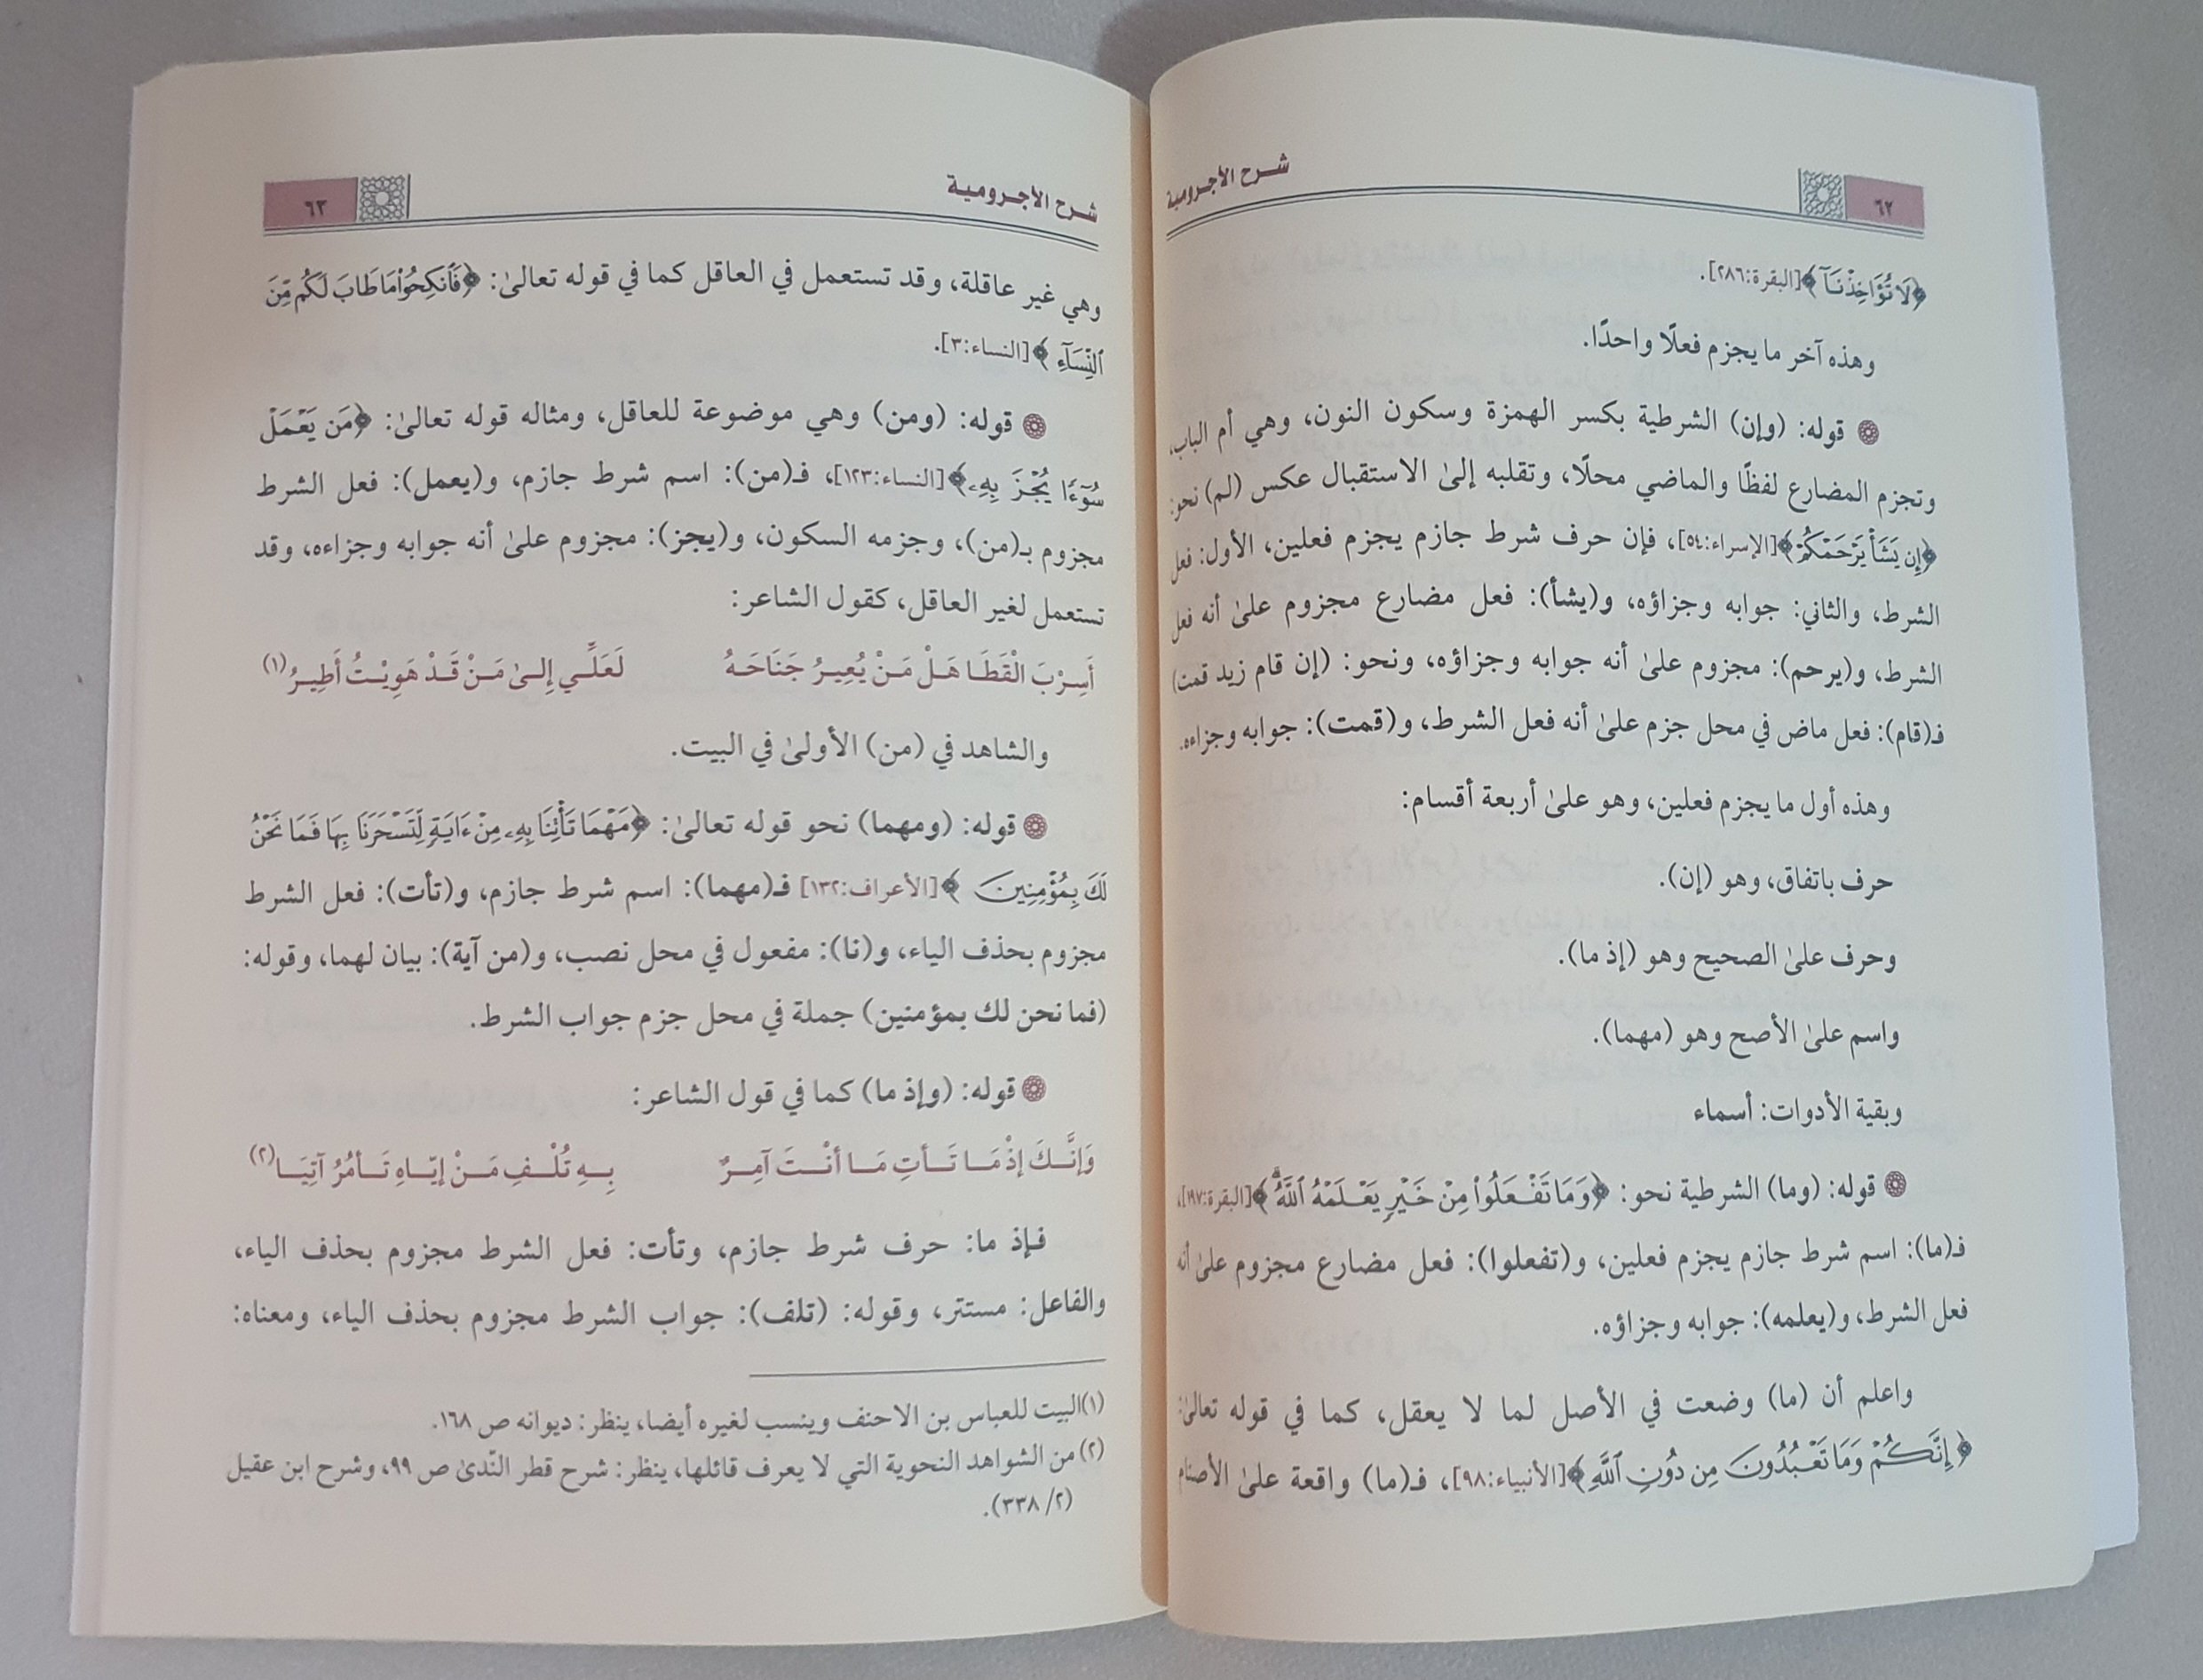 شرح الأجرومية
٦٢
﴿لَا تُؤَاخِذْنَآ﴾[البقرة:٢٨٦].
وهذه آخر ما يجزم فعلًا واحدًا.
قوله: (وإن) الشرطية بكسر الهمزة وسكون النون، وهي أم الباب،
وتجزم المضارع لفظًا والماضي محلًا، وتقلبه إلىٰ الاستقبال عكس (لم) نحو:
﴿إِن يَشَأْ يَرْحَمْكُمْ﴾[الإسراء:٥٤]، فإن حرف شرط جازم يجزم فعلين، الأول: فعل
الشرط، والثاني: جوابه وجزاؤه، و(يشأ): فعل مضارع مجزوم علىٰ أنه فعل
الشرط، و(يرحم): مجزوم علىٰ أنه جوابه وجزاؤه، ونحو: (إن قام زيد قمت)
فـ(قام): فعل ماض في محل جزم علىٰ أنه فعل الشرط، و(قمت): جوابه وجزاءه.
وهذه أول ما يجزم فعلين، وهو علىٰ أربعة أقسام:
حرف باتفاق، وهو (إن).
وحرف علىٰ الصحيح وهو (إذ ما).
واسم علىٰ الأصح وهو (مهما).
وبقية الأدوات: أسماء
قوله: (وما) الشرطية نحو: ﴿وَمَا تَفْعَلُوا۟ مِنْ خَيْرٍ يَعْلَمْهُ ٱللَّهُ﴾[البقرة:١٩٧]،
فـ(ما): اسم شرط جازم يجزم فعلين، و(تفعلوا): فعل مضارع مجزوم علىٰ أنه
فعل الشرط، و(يعلمه): جوابه وجزاؤه.
واعلم أن (ما) وضعت في الأصل لما لا يعقل، كما في قوله تعالىٰ:
﴿إِنَّكُمْ وَمَا تَعْبُدُونَ مِن دُونِ ٱللَّهِ﴾[الأنبياء:٩٨]، فـ(ما) واقعة علىٰ الأصنام
شرح الأجرومية
٦٣
وهي غير عاقلة، وقد تستعمل في العاقل كما في قوله تعالىٰ: ﴿فَٱنكِحُوا۟ مَا طَابَ لَكُم مِّنَ
ٱلنِّسَآءِ﴾[النساء:٣].
قوله: (ومن) وهي موضوعة للعاقل، ومثاله قوله تعالىٰ: ﴿مَن يَعْمَلْ
سُوٓءًا يُجْزَ بِهِۦ﴾[النساء:١٢٣]، فـ(من): اسم شرط جازم، و(يعمل): فعل الشرط
مجزوم بـ(من)، وجزمه السكون، و(يجز): مجزوم علىٰ أنه جوابه وجزاءه، وقد
تستعمل لغير العاقل، كقول الشاعر:
أَسِرْبَ الْقَطَا هَلْ مَنْ يُعِيرُ جَنَاحَهُ لَعَلِّي إِلىٰ مَنْ قَدْ هَوِيْتُ أَطِيرُ(١)
والشاهد في (من) الأولىٰ في البيت.
قوله: (ومهما) نحو قوله تعالىٰ: ﴿مَهْمَا تَأْتِنَا بِهِۦ مِنْ ءَايَةٍ لِّتَسْحَرَنَا بِهَا فَمَا نَحْنُ
لَكَ بِمُؤْمِنِينَ﴾[الأعراف:١٣٢] فـ(مهما): اسم شرط جازم، و(تأت): فعل الشرط
مجزوم بحذف الياء، و(نا): مفعول في محل نصب، و(من آية): بيان لهما، وقوله:
(فما نحن لك بمؤمنين) جملة في محل جزم جواب الشرط.
قوله: (وإذ ما) كما في قول الشاعر:
وَإِنَّكَ إذْمَا تَأتِ مَا أنْتَ آمِرٌ بِهِ تُلْفِ مَنْ إيّاهِ تَأمُرُ آتِيَا(٢)
فإذ ما: حرف شرط جازم، وتأت: فعل الشرط مجزوم بحذف الياء،
والفاعل: مستتر، وقوله: (تلف): جواب الشرط مجزوم بحذف الياء، ومعناه:
(١)البيت للعباس بن الاحنف وينسب لغيره أيضا، ينظر: ديوانه ص ١٦٨.
(٢) من الشواهد النحوية التي لا يعرف قائلها، ينظر: شرح قطر النّدىٰ ص ٩٩، وشرح ابن عقيل
(٢/ ٣٣٨).